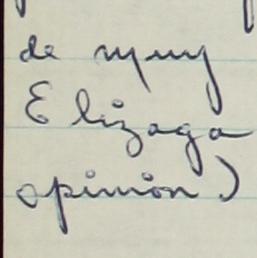 de muy
Elizaga
opinion)